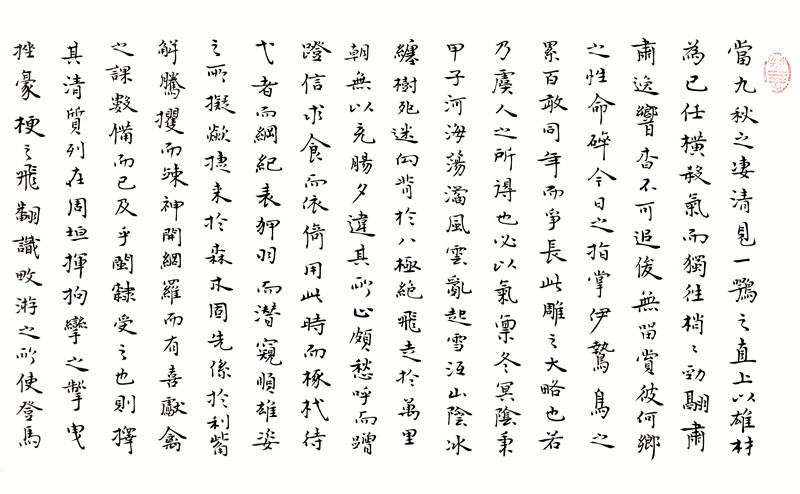 當九秋之凄清見一鶚之直上以雄材
為已仕橫殺氣而獨往梢〻勁翮肅
肅逸響杳不可追俊無留賞彼何鄉
之性命碎今日之指掌伊鷙鳥之
累百敢同年而爭長此雕之大略也若
乃虞人之所得也必以氣稟冬冥陰乘
甲子河海蕩潏風雲亂起雪沍山陰冰
纏樹死迷向背於八極絕飛走於萬里
朝無以充腸夕違其所止頗愁呼而蹭
蹬信求食而依倚用此時而椓杙待
弋者而綱紀表狎羽而潛窺順雄姿
之所擬欻捷来於森木固先係於利觜
解騰攫而竦神開網羅而有喜獻禽
之課數備而已及乎閩隸受之也則擇
其清質列在周垣揮拘攣之掣曳
挫豪梗之飛翻識畋游之所使登馬